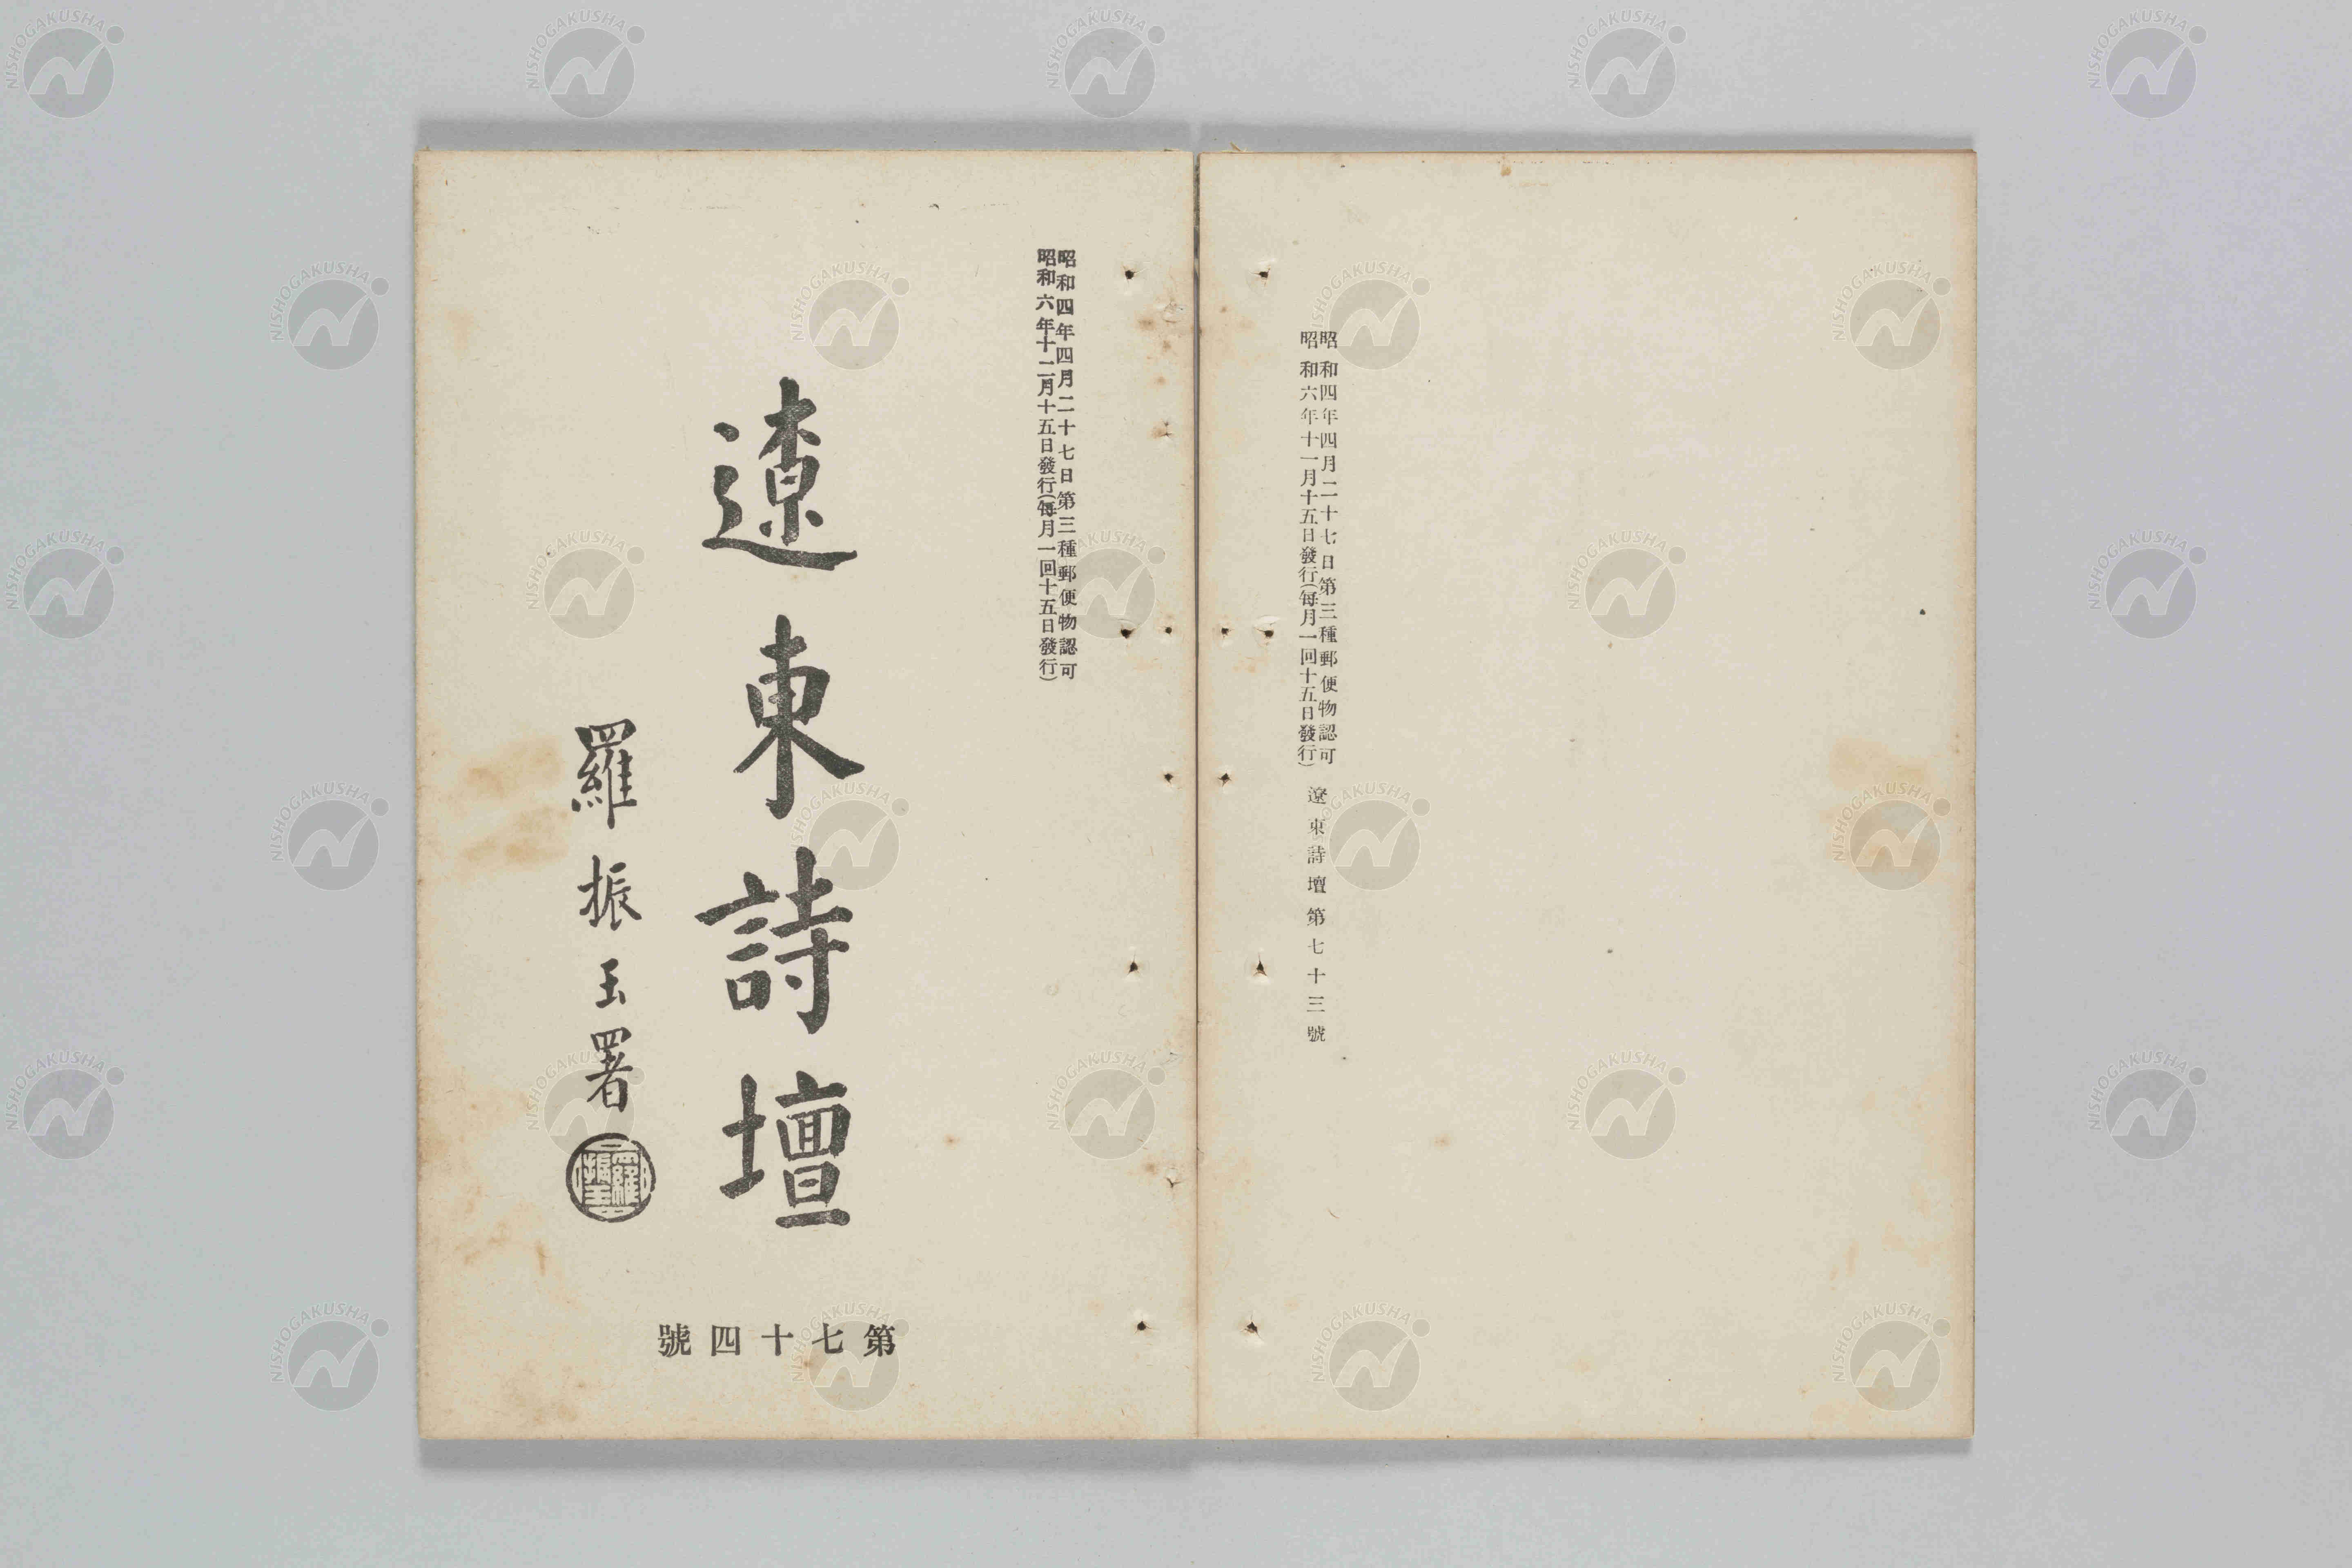 昭和四年四月二十七日第三種郵便物認可
昭和六年十一月十五日發行(每月一回十五日發行)
遼東詩壇第七十三號
昭和四年四月二十七日第三種郵便物認可
昭和六年十二月十五日發行(每月一回十五日發行)
遼東詩壇
羅振玉署
第七十四號
NISHOGAKUSHA